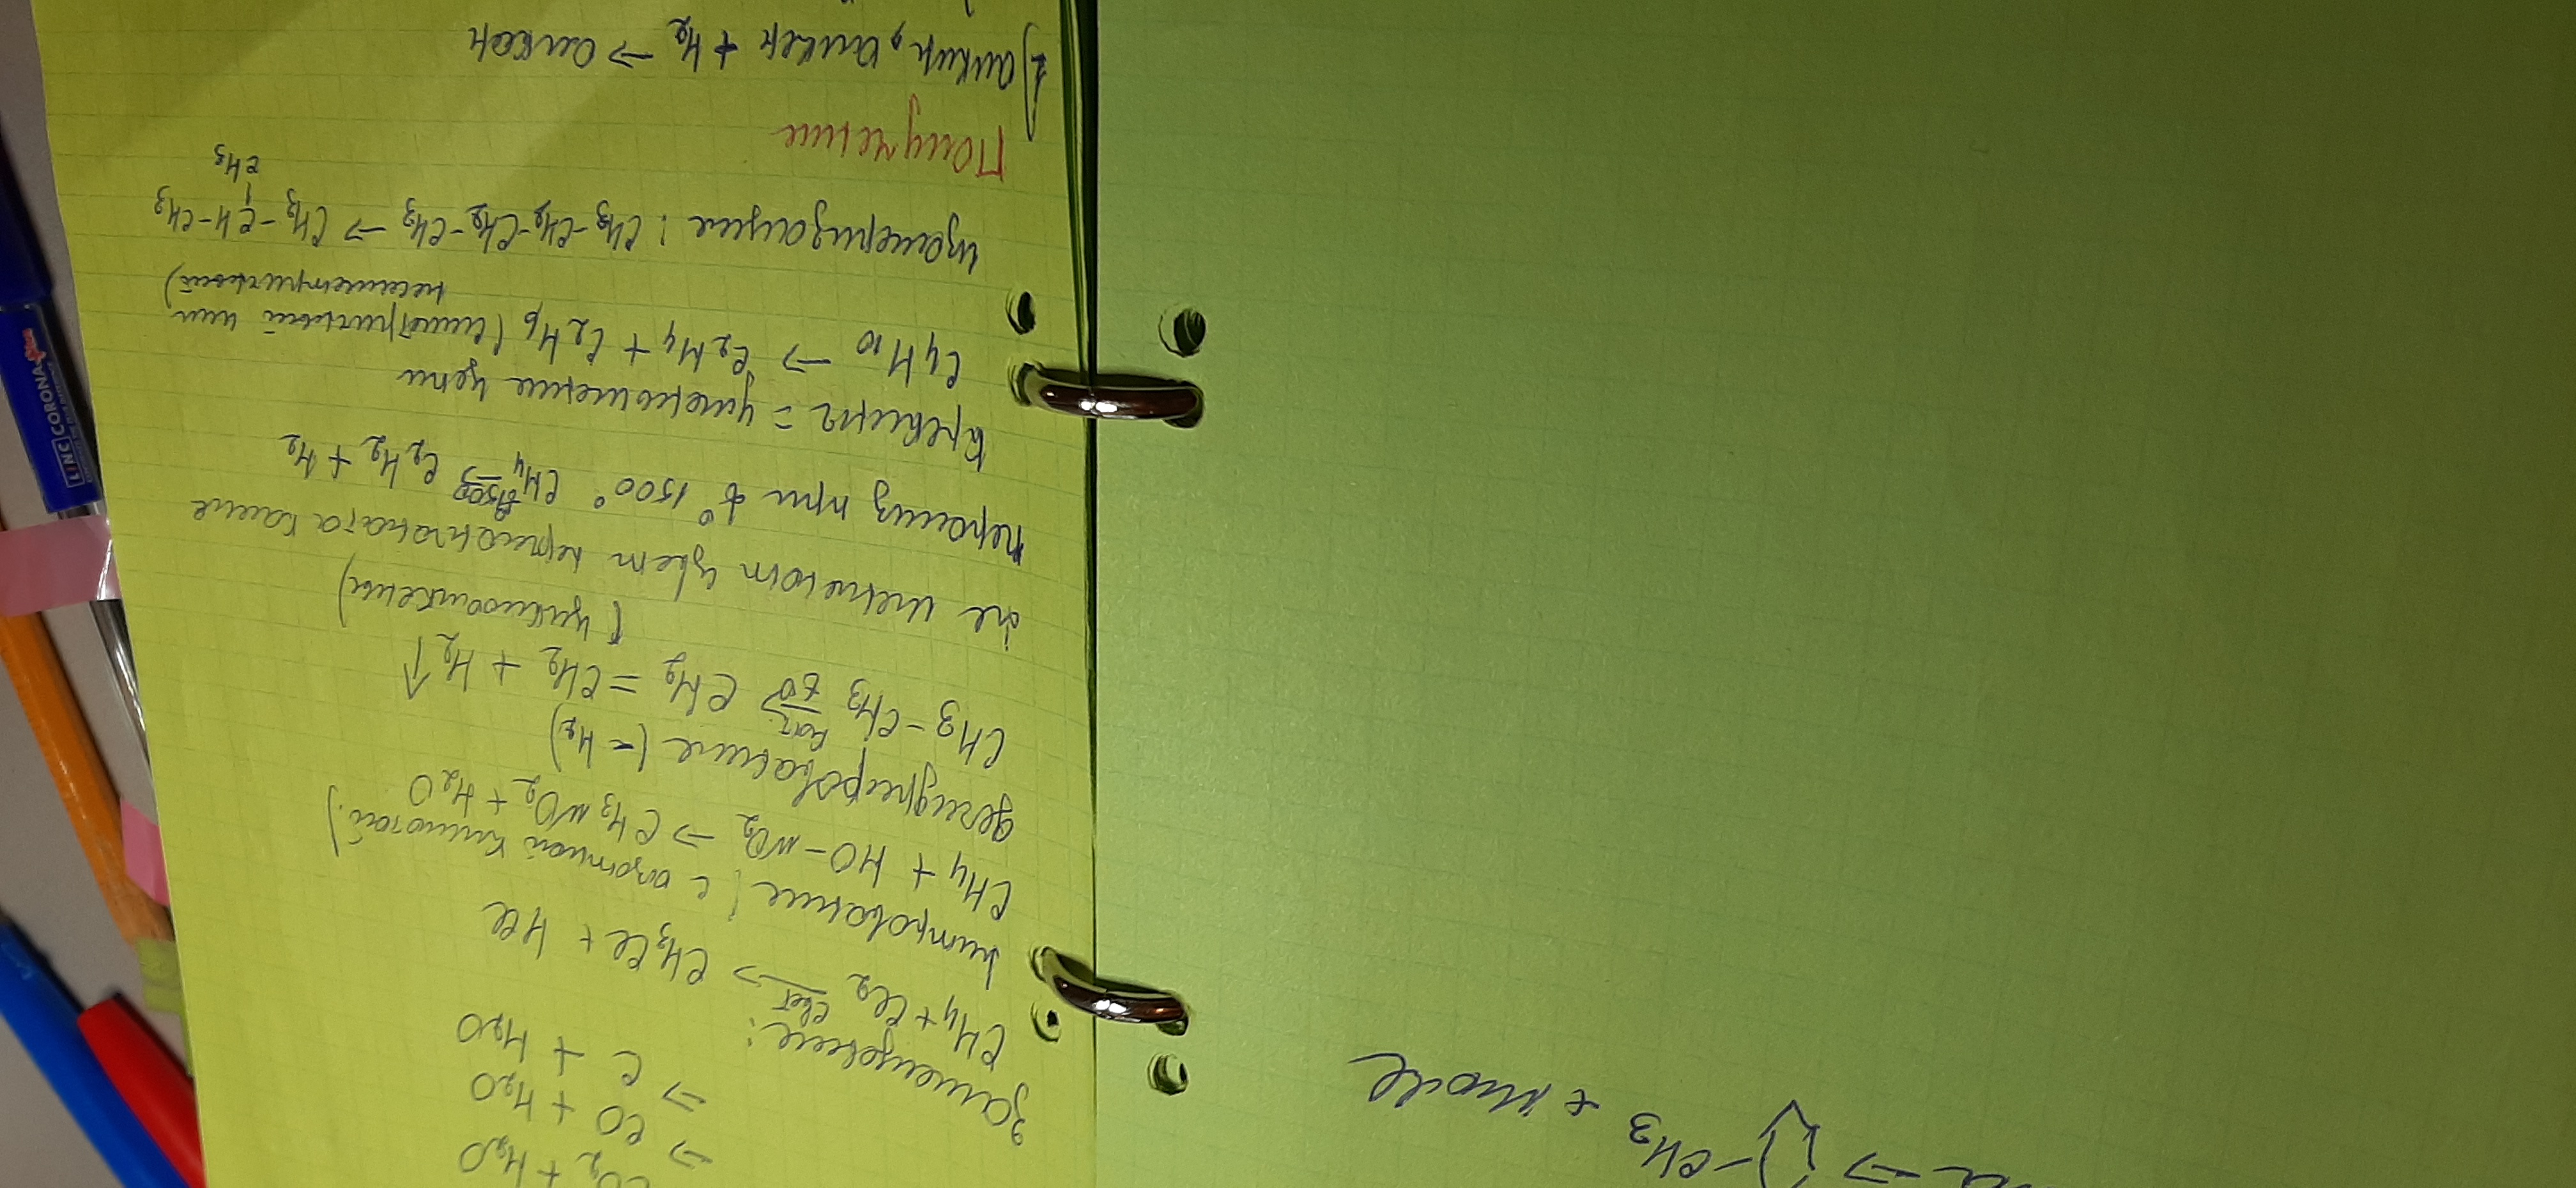 LINC CORONA plus
CO2 + H2O
=> CO + H2O
=> C + H2O
Замещение:
CH4 + Cl2 свет → CH3Cl + HCl
нитрование (с азотной кислотой)
CH4 + HO-NO2 → CH3NO2 + H2O
дегидрирование (-H2)
CH3-CH3 кат t° ⇒ CH2=CH2 + H2↑
(циклоалкены)
не меняют цвет перманганата калия
перолиз при t° 1500° CH4 1500 → C2H2 + H2
крекинг = уменьшение цепи
C4H10 → C2H4 + C2H6 (симетричный или
несиметричный)
изомеризация: CH3-CH2-CH2-CH3 → CH3-CH-CH3
CH3
Получение
1) алкин, алкен + H2 → алкан
→ -CH3 + NaCl